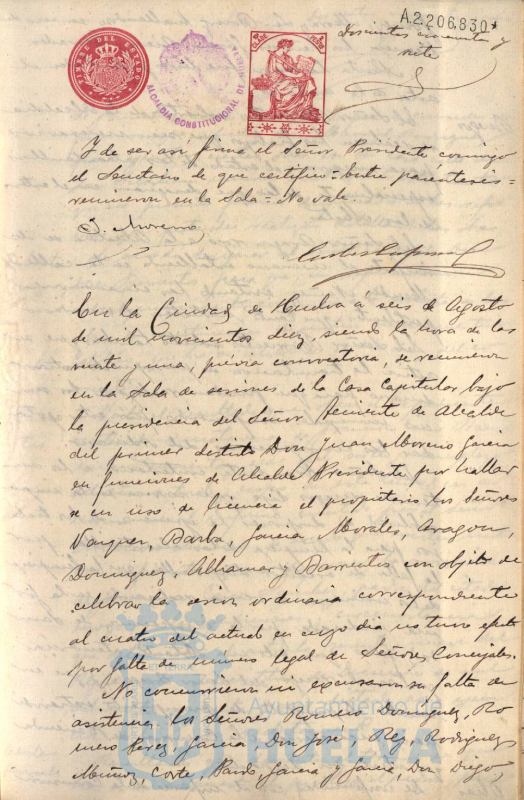 A.2.206.830*
Doscientos cincuenta y
siete
TIMBRE DEL ESTADO
ALCALDÍA CONSTITUCIONAL DE HUELVA
11ª CLASE
Y de ser así firma el Señor Presidente conmigo
el Secretario de que certifico = Entre paréntesis =
reunieron en la Sala = No vale.
J. Moreno
En la Ciudad de Huelva á seis de Agosto
de mil novecientos diez, siendo la hora de las
veinte y una, prévia convocatoria, se reunieron
en la Sala de sesiones de la Casa Capitular bajo
la presidencia del Señor Teniente de Alcalde
del primer distrito Don Juan Moreno García
en funciones de Alcalde Presidente por hallar
se en uso de licencia el propietario los Señores
Vazquez, Barba, García Morales, Aragon,
Dominguez, Alhamar y Barrientos con objeto de
celebrar la sesion ordinaria correspondiente
al cuatro del actual en cuyo dia no tuvo efecto
por falta de número legal de Señores Concejales.
No concurrieron ni excusaron su falta de
asistencia, los Señores Romero Dominguez, Ro
mero Perez, García, Don José, Rey, Rodriguez
Muñoz, Corte, Pardo, García y García, Don Diego,
Ayuntamiento de
HUELVA